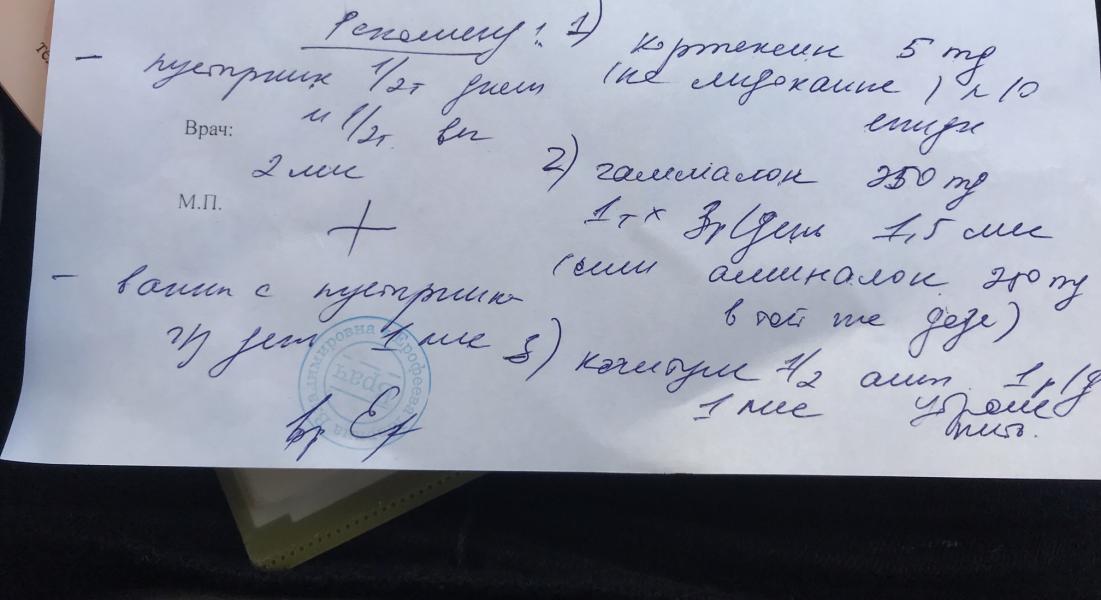 Рекоменд: 1) Кортексин 5 mg
(на лидокаине) N 10
- пустырник 1/2т днем
и 1/2т. веч
Врач:
2 мес
М.П.
2) гаммалон 250 mg
1т x 3р/день 1,5 мес
(или аминалон 250 mg
в той же дозе)
- ванны с пустырник
ч/з день 1 мес
3) когитум 1/2 амп. 1р/д
1 мес утром
пить.
Владимировна * Ерофеева
Врач
Вр